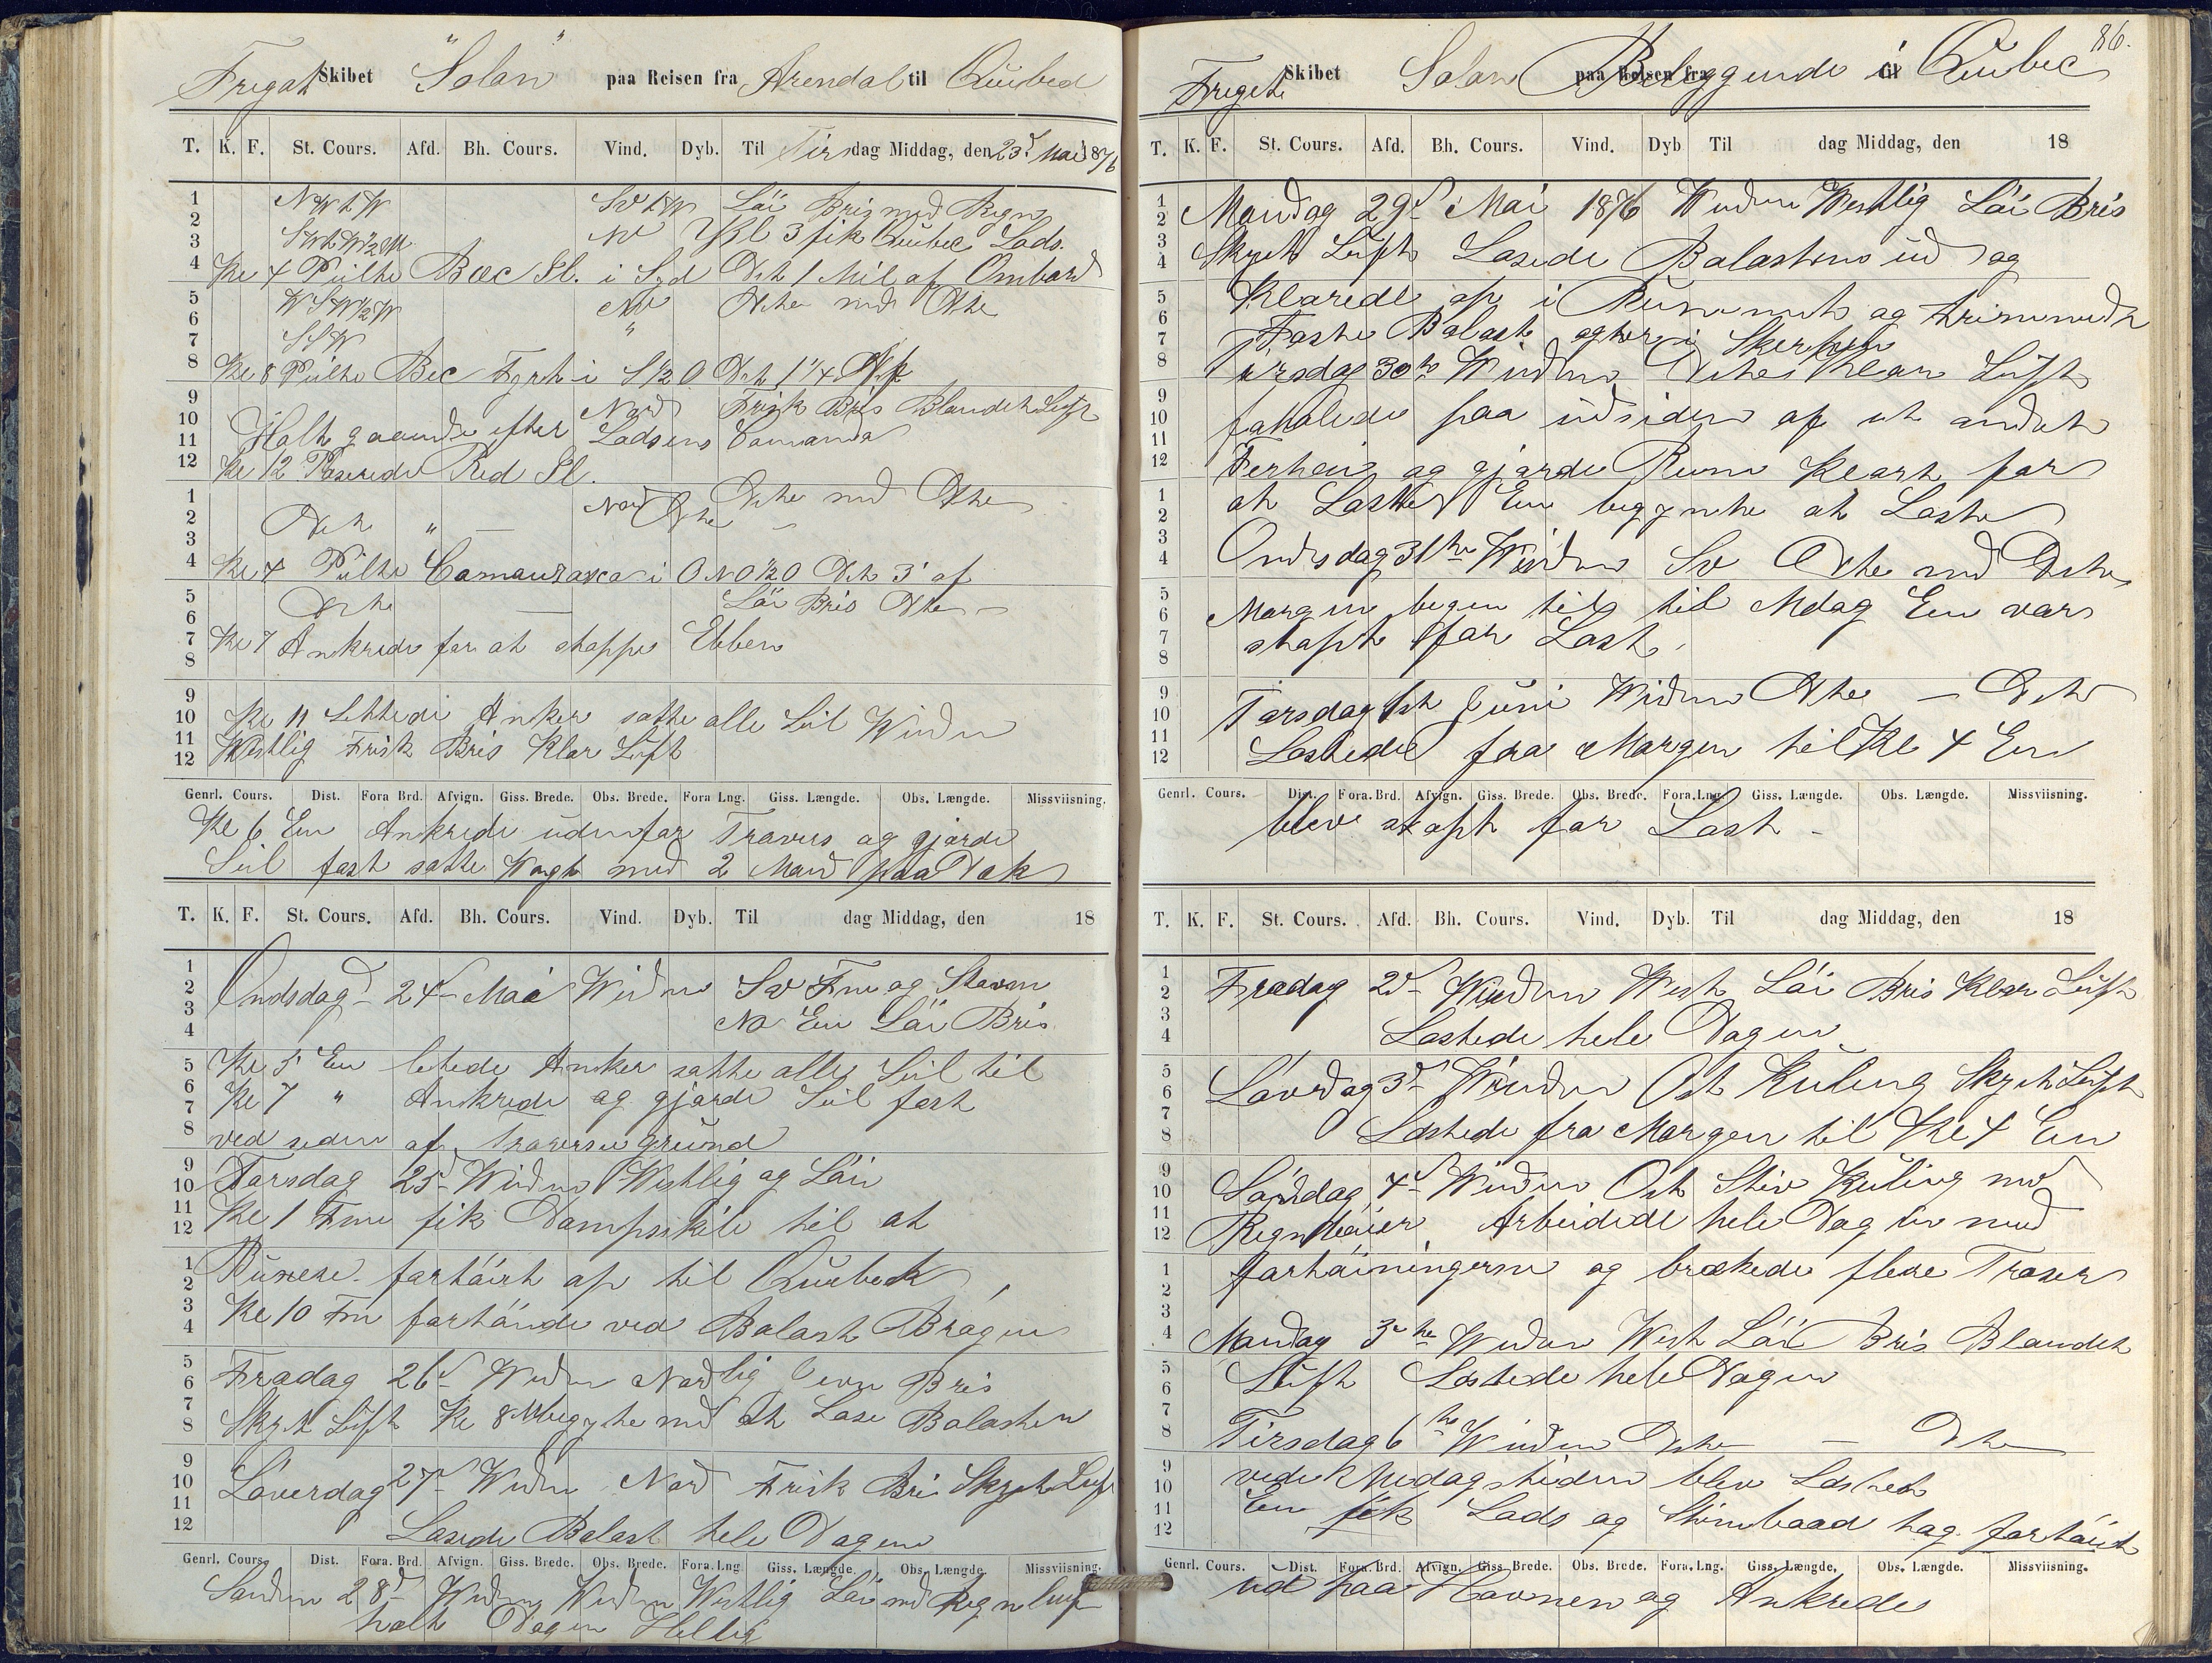 Fregat Skibet "Solon" paa Reisen fra Arendal til Quebec
T. K. F. St. Cours. Afd. Bh. Cours. Vind. Dyb. Til Tirsdag Middag, den 23d Mai 1876
1 NWtW SvtW Löi Bris med Regn
2 SWtW½W NV Kl 3 fik Quebec Lods.
3
4 Kl 4 Peilte Bec Sl. i Syd Dst 1 Mil af Ombord
5 WSW½W NV Dito med Dito
6 "
7 SSW
8 Kl 8 Peilte Bec Fyrt i S½O Dst 1¼ Af
9 Nord Frisk Bris Blandet Luft
10 Holt gaaende efter Lodsens Comando
11
12 Kl 12 Paserede Red Sl.
1 Nord Dito med Dito
2 Dito " — Dto —
3
4 Kl 4 Peilte Camauraska i ONO½O Dst 3' af
5 Dito — Löi Bris Dto —
6
7 Kl 7 Ankrede for at stoppe Ebben
8
9
10 Kl 11 Lettede Anker satte alle Seil Winden
11 Westlig Frisk Bris Klar Luft
12
Genrl. Cours. Dist. Fora Brd. Afvign. Giss. Brede. Obs. Brede. Fora Lng. Giss. Længde. Obs. Længde. Missviisning.
Kl 6 Em Ankrede udenfor Travers og gjorde
Seil fast satte Wagt med 2 Mand paa Dæk
T. K. F. St. Cours. Afd. Bh. Cours. Vind. Dyb. Til dag Middag, den 18
1
2 Ondsdag 24d Mai Winden Sv Fm og Stavm
3 NO Em Löi Bris
4
5 Kl 5 Em letede Anker satte alle Seil til
6 Kl 7 " Ankrede og gjorde Seil fast
7
8 ved siden af Traverse grund
9
10 Torsdag 25d Winden Westlig og Löi
11
12 Kl 1 Fm fik Dampskib til at
1 Bugsere fortöiet op til Quebeck
2
3 Kl 10 Fm fortöiede ved Balast Brögen
4
5
6 Fredag 26d Winden Nordlig jevn Bris
7
8 Skyet Luft Kl 8 begyte med at Lose Balasten
9
10 Löverdag 27d Winden Nord Frisk Bri Skyet Luft
11
12 Losede Balast hele Dagen
Genrl. Cours. Dist. Fora. Brd. Afvign. Giss. Brede. Obs. Brede. Fora. Lng. Giss. Længde. Obs. Længde. Missviisning.
Sönden 28d Winden Winden Westlig Löi med Regn luft
holt Dagen Hellig
86.
Fregat Skibet Solon paa Reisen fra Beleggende til i Quebec
T. K. F. St. Cours. Afd. Bh. Cours. Vind. Dyb Til dag Middag, den 18
1
2 Mandag 29d Mai 1876 Winden Westlig Löi Bris
3
4 Skyet Luft Losede Balasten ud og
5 Klarede op i Rummet og trimmede
6
7 Faste Balast agter i Skerpen
8 Tirsdag 30te Winden Dito Klar Luft
9
10 forhalede paa udsiden af et andet
11
12 Fertöi og gjorde Rum Klart for
1 at Laste Em begynte at Laste
2
3
4 Ondsdag 31te Winden Sv Dito med Dito
5
6 Morgenen begyn til til Mdag Em var
7 stopt for Last.
8
9
10 Torsdag 1st Juni Winden Dto — Dito
11
12 Lastede fra Morgen til Kl 4 Em
Genrl. Cours. Dist. Fora. Brd. Afvign. Giss. Brede. Obs. Brede. Fora. Lng. Giss. Længde. Obs. Længde. Missviisning.
blev stopt for Last —
T. K. F. St. Cours. Afd. Bh. Cours. Vind. Dyb. Til dag Middag, den 18
1
2 Fredag 2d Winden West Löi Bris Klar Luft
3
4 Lastede hele Dagen
5
6 Lövrdag 3d Winden Ost Kuling Skyet Luft
7
8 Lastede fra Morgen til Kl 4 Em
9
10 Söndag 4d Winden Ost Stiv Kuling med
11
12 Regnböier. Arbeidede hele Dagen med
1 fortöiningerne og brækede flere Troser
2
3
4 Mandag Winden West Löi Bris Blandet
5
6 Luft Lastede hele Dagen
7
8 Tirsdag 6te Winden Dito — Dto
9 vede Midagstiden blev Lastet
10
11 Em fik Lods og Stimbaad tog fortöiet
12
Genrl. Cours. Dist. Fora. Brd. Afvign. Giss. Brede. Obs. Brede. Fora. Lng. Giss. Længde, Obs. Længde. Missviisning.
ud paa Havnen og Ankrede